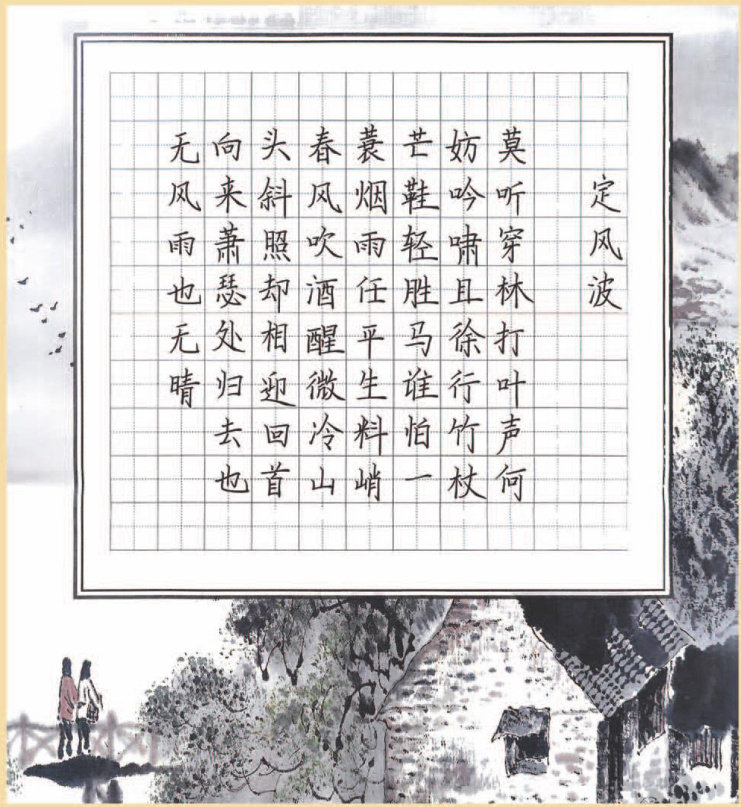 定风波
莫听穿林打叶声何
妨吟啸且徐行竹杖
芒鞋轻胜马谁怕一
蓑烟雨任平生料峭
春风吹酒醒微冷山
头斜照却相迎回首
向来萧瑟处归去也
无风雨也无晴